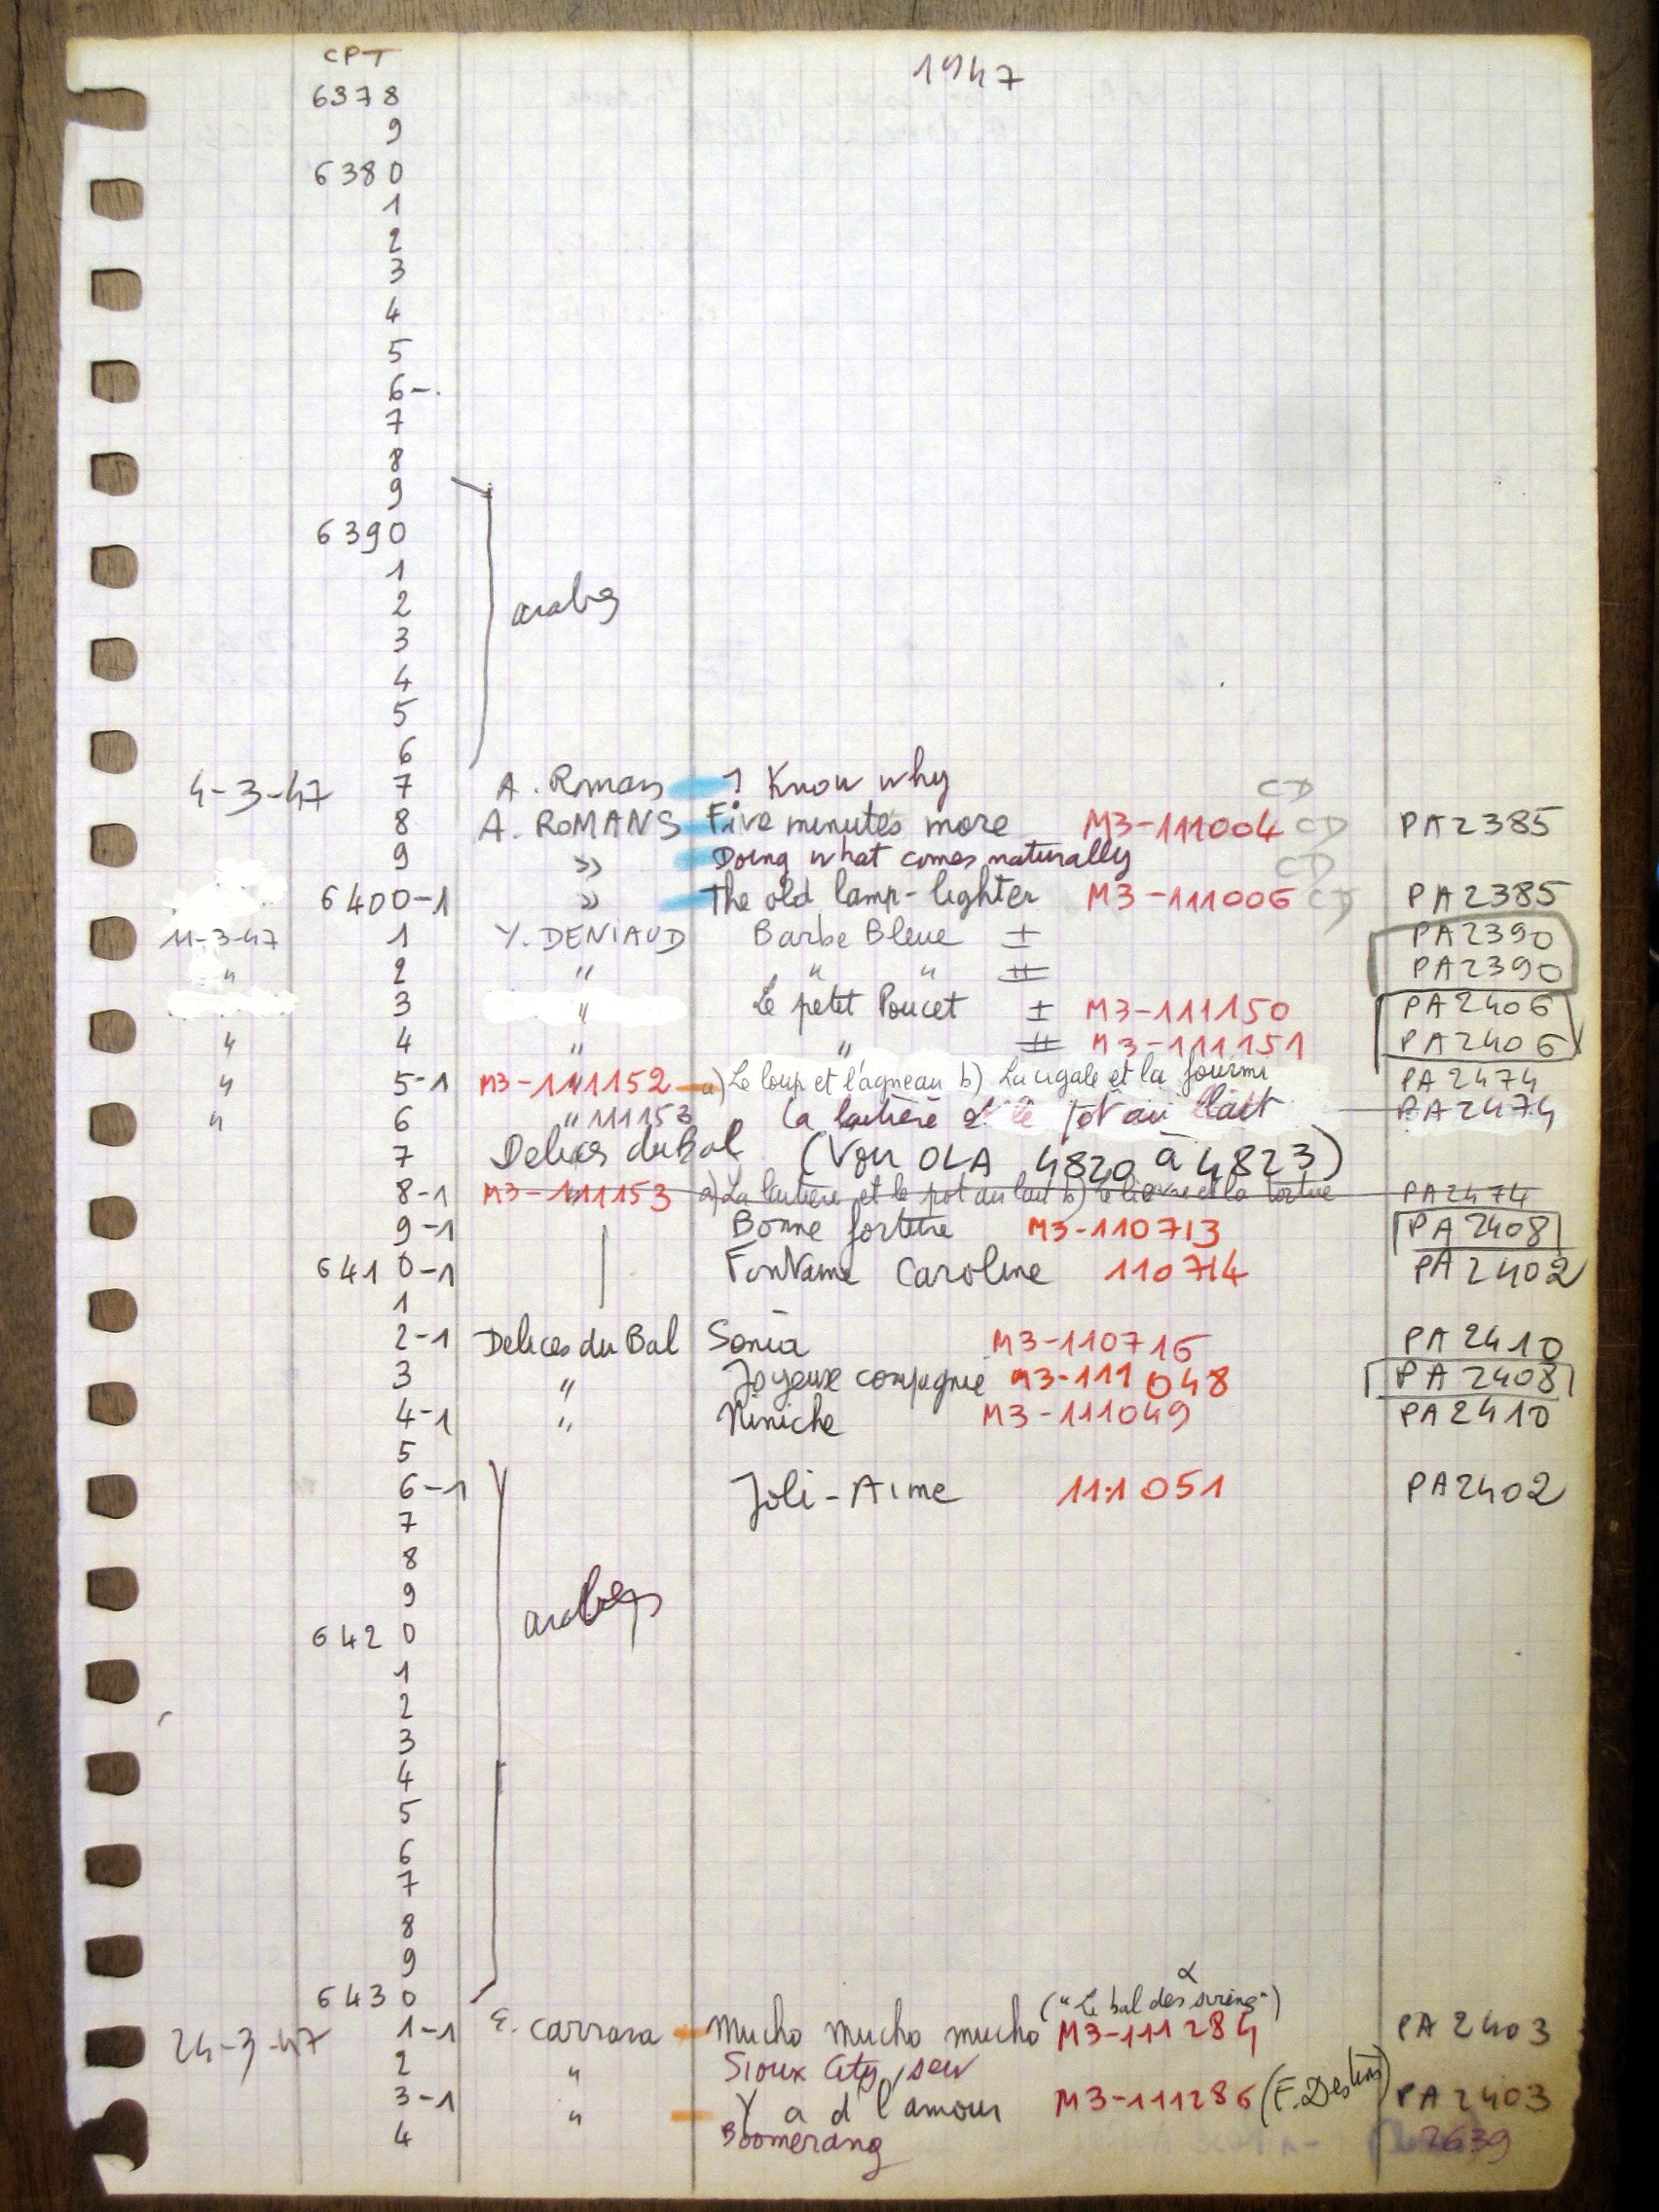 CPT 1947
6378
9
6380
1
2
3
4
5
6-.
7
8
9
6390
1
2 arabes
3
4
5
6
4-3-47 7 A. Romans I Know why CD
8 A. ROMANS Five minutes more M3-111004 CD PA2385
9 » Doing what comes naturally CD
6400-1 » The old lamp-lighter M3-111006 CD PA2385
11-3-47 1 Y. DENIAUD Barbe Bleue I PA2390
" 2 " " " II PA2390
3 " Le petit Poucet I M3-111150 PA2406
" 4 " " II M3-111151 PA2406
" 5-1 M3-111152 a) Le loup et l'agneau b) La cigale et la fourmi PA2474
" 6 " 111153 La laitière et le pot au lait PA2474
7 Delices du Bal (Voir OLA 4820 à 4823)
8-1 M3-111153 a) La laitière et le pot au lait b) le lièvre et la tortue PA2474
9-1 Bonne fortune M3-110713 PA2408
6410-1 Fontaine Caroline 110714 PA2402
1
2-1 Delices du Bal Sonia M3-110716 PA2410
3 " Joyeuse compagnie M3-111048 PA2408
4-1 " Niniche M3-111049 PA2410
5
6-1 Joli-Aime 111051 PA2402
7
8
9 arabes
6420
1
2
3
4
5
6
7
8
9
6430 ("Le bal des sirènes")
24-3-47 1-1 E. Carrara Mucho mucho mucho M3-111284 PA2403
2 " Sioux City sew
3-1 " Y a d l'amour M3-111286 (F. Destins) PA2403
4 Boomerang 2639